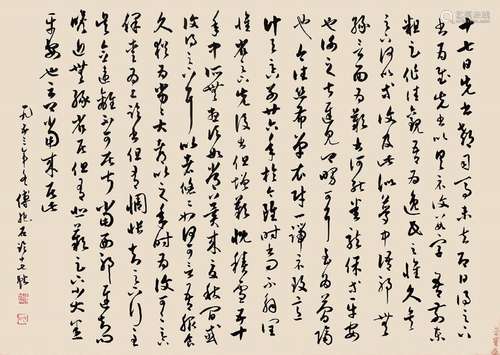 十七日先書郗司馬未去即日得足下
書爲慰先書以具示復數字吾前東
粗足作佳觀吾爲逸民之懷久矣
足下何以方復及此似夢中語耶無
緣言面爲歎書何能悉龍保等平安
也謝之甚遲見卿舅可耳至爲簡隔
也今往絲布單衣財一端示致意
計與足下別廿六年於今雖時書問不解闊
懷省足下先後二書但增歎慨頃積雪凝寒五十
年中所無想頃如常冀來夏秋間或
復得足下問耳比者悠悠如何可言吾服食
久猶爲劣劣大都比之年時爲復可可足下
保愛爲上臨書但有惆悵知足下行至
吳念違離不可居叔當西耶遲知問
瞻近無緣省告但有悲歎足下小大悉
平安也云卿當來居此